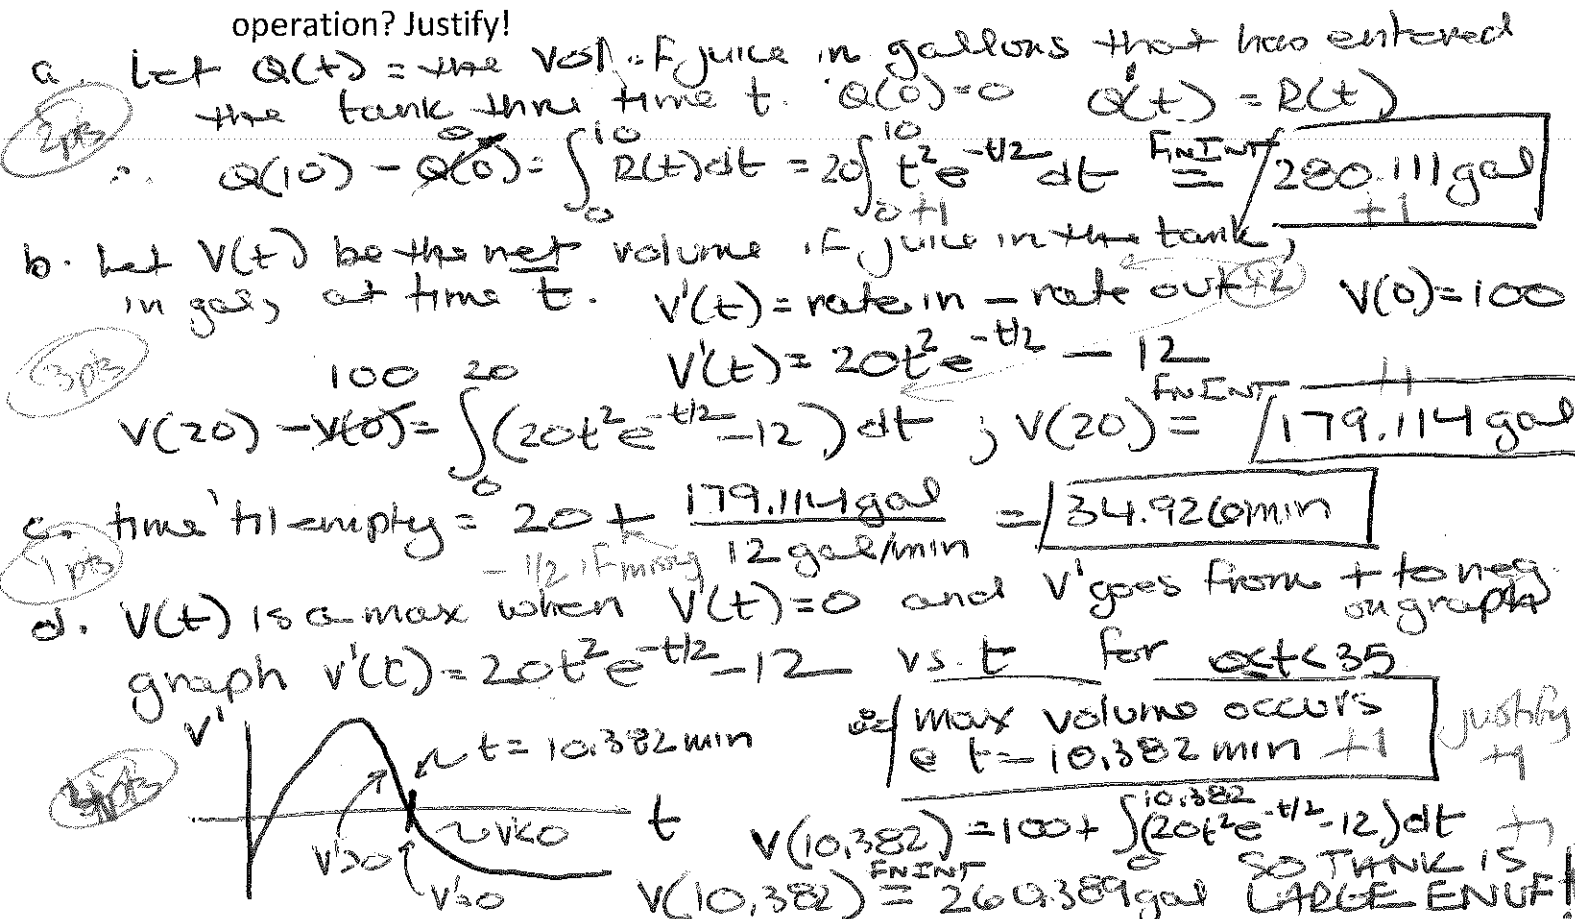 operation? Justify!
a. Let Q(t) = the vol. of juice in gallons that has entered
the tank thru time t. Q(0)=0 Q'(t) = R(t)
2pts
∴ Q(10) - Q(0) = ∫₀¹⁰ R(t)dt = 20∫₀¹⁰ t²e^(-t/2) dt FNINT = 280.111 gal
0 +1 +1
b. Let V(t) be the net volume of juice in the tank,
in gal, at time t. V'(t) = rate in - rate out +2 V(0)=100
3pts
V'(t) = 20t²e^(-t/2) - 12
100
V(20) - V(0) = ∫₀²⁰ (20t²e^(-t/2) - 12) dt ; V(20) = FNINT 179.114 gal
+1
c. time 'til empty = 20 + 179.114 gal / 12 gal/min = 34.926 min
1 pts - 1/2 if missing
d. V(t) is a max when V'(t)=0 and V' goes from + to neg.
on graph
graph V'(t) = 20t²e^(-t/2) - 12 vs. t for 0<t<35
V' t = 10.382 min ∴ max volume occurs
@ t = 10.382 min +1 justify +1
4pts
t
V'>0 V'<0
V'=0
V(10.382) = 100 + ∫₀^10.382 (20t²e^(-t/2) - 12) dt +1
V(10.382) FNINT = 260.389 gal SO TANK IS
LARGE ENUF!